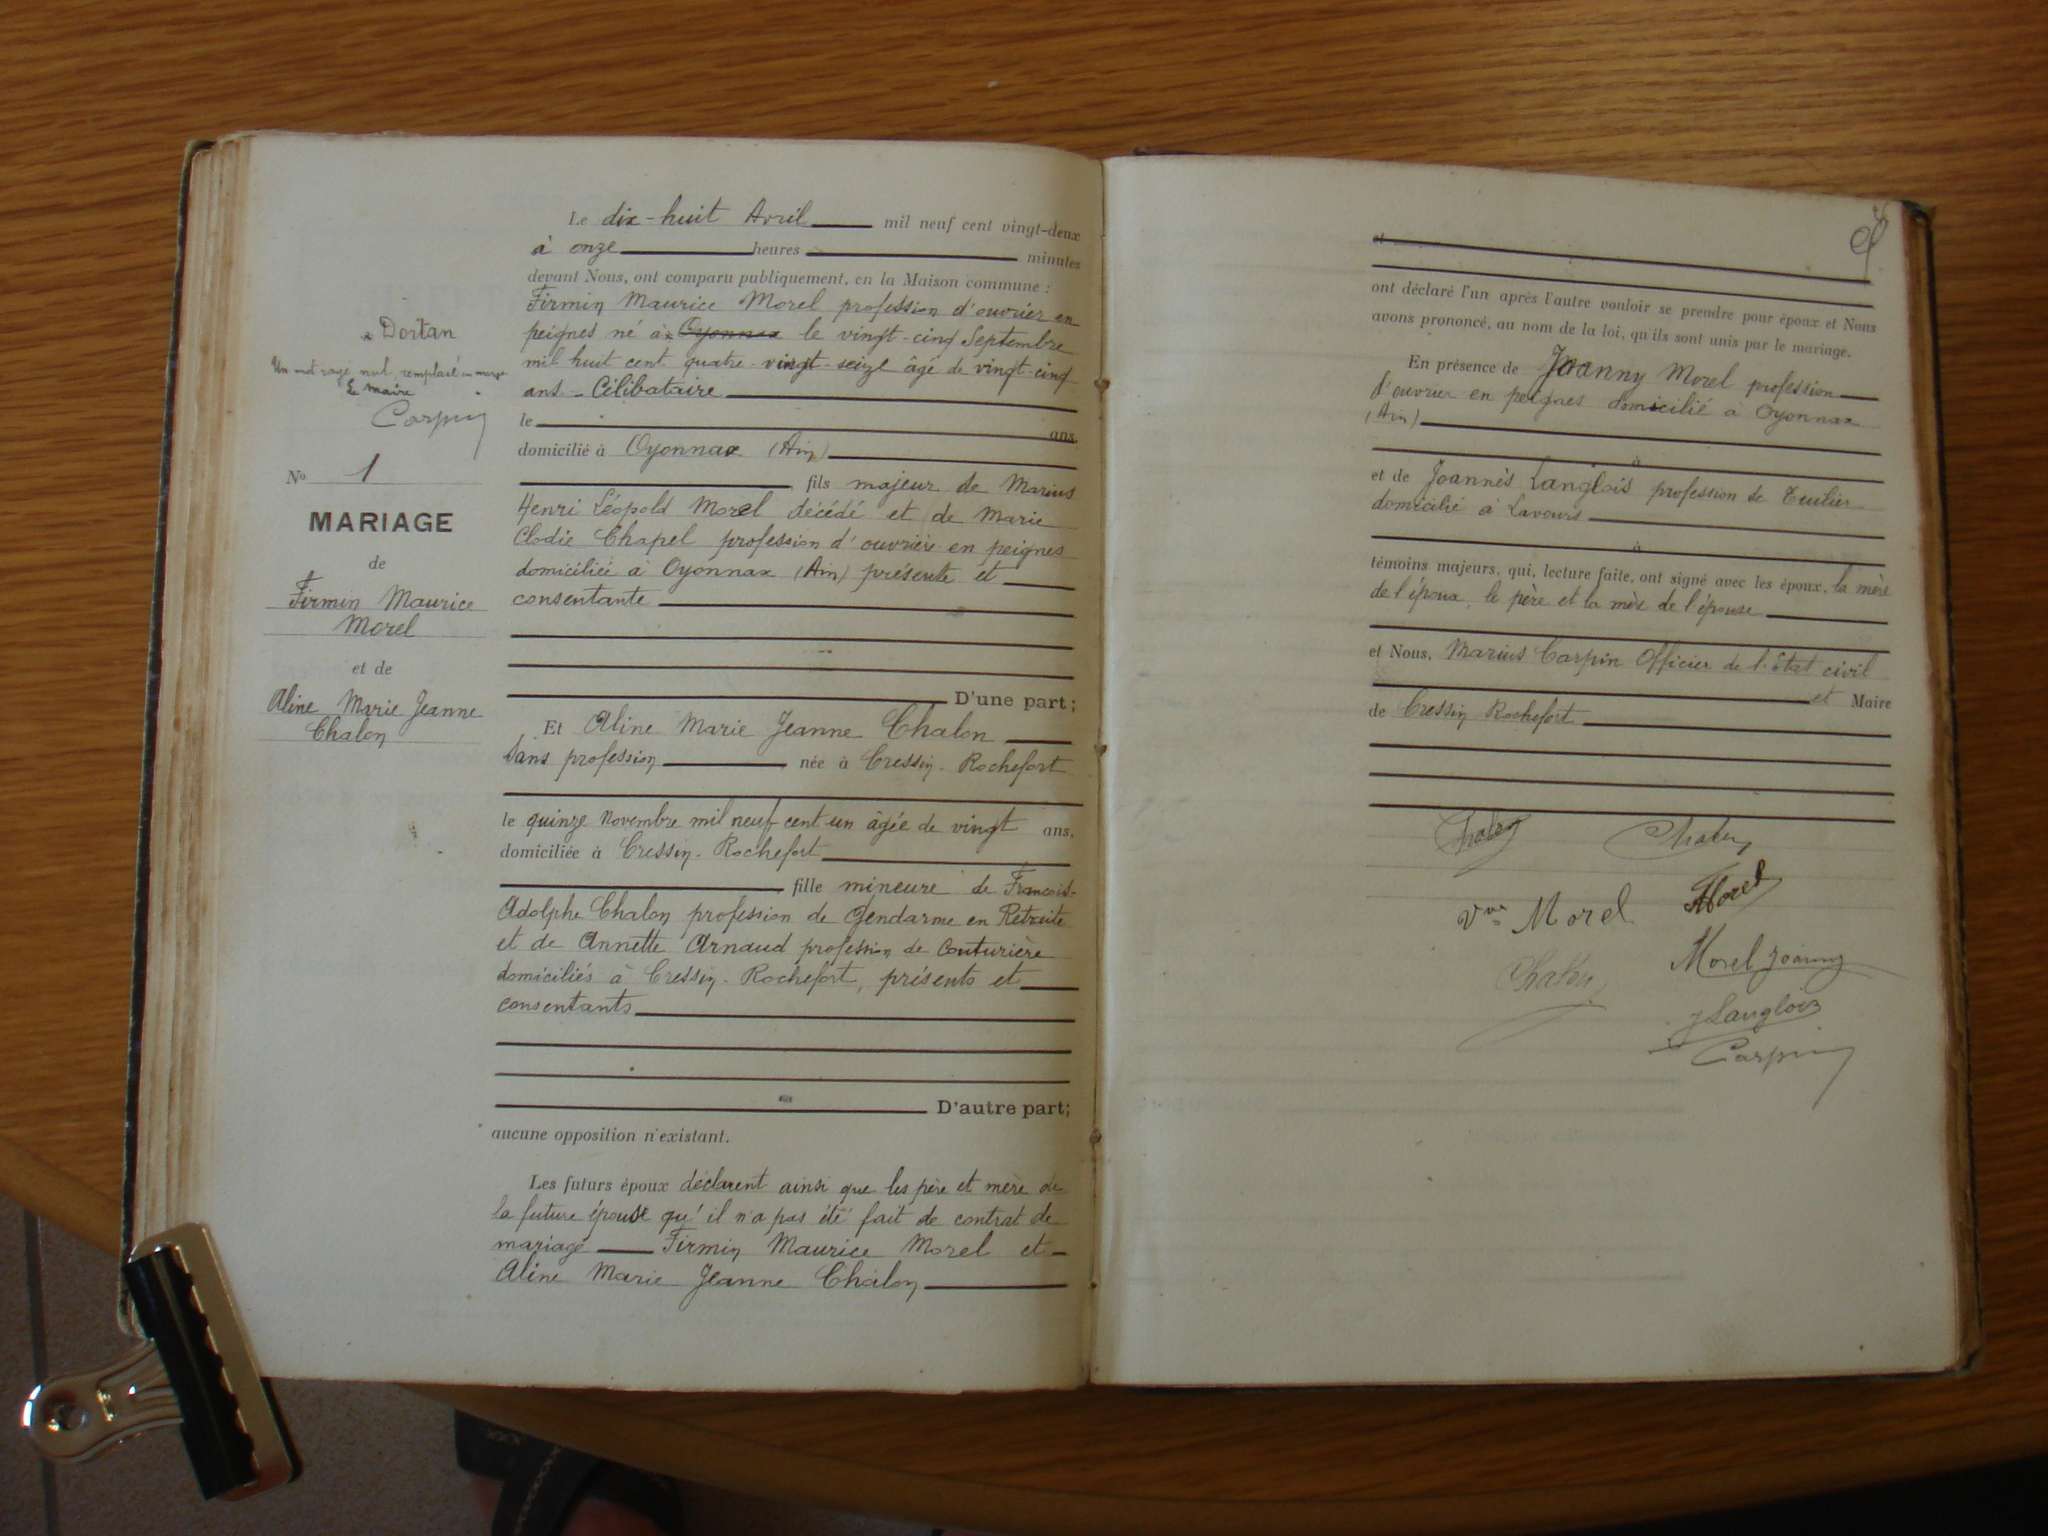 x Dortan
Un mot rayé nul, remplacé en marge
Le maire
Carpin
No 1
MARIAGE
de
Firmin Maurice
Morel
et de
Aline Marie Jeanne
Chalon
Le dix-huit Avril mil neuf cent vingt-deux
à onze heures minutes
devant Nous, ont comparu publiquement, en la Maison commune :
Firmin Maurice Morel profession d'ouvrier en
peignes né à x Oyonnax le vingt-cinq Septembre
mil huit cent quatre-vingt-seize âgé de vingt-cinq
ans - Célibataire
le ans,
domicilié à Oyonnax (Ain)
fils majeur de Marius
Henri Léopold Morel décédé et de Marie
Clodie Chapel profession d'ouvrière en peignes
domiciliée à Oyonnax (Ain) présente et
consentante
D'une part ;
Et Aline Marie Jeanne Chalon
Sans profession née à Cressin-Rochefort
le quinze Novembre mil neuf cent un âgée de vingt ans,
domiciliée à Cressin-Rochefort
fille mineure de François-
Adolphe Chalon profession de Gendarme en Retraite
et de Annette Arnaud profession de Couturière
domiciliés à Cressin-Rochefort, présents et
consentants
D'autre part ;
aucune opposition n'existant.
Les futurs époux déclarent ainsi que les père et mère de
la future épouse qu'il n'a pas été fait de contrat de
mariage Firmin Maurice Morel et
Aline Marie Jeanne Chalon
et
ont déclaré l'un après l'autre vouloir se prendre pour époux et Nous
avons prononcé, au nom de la loi, qu'ils sont unis par le mariage.
En présence de Joanny Morel profession
d'ouvrier en peignes domicilié à Oyonnax
(Ain)
à
et de Joannès Langlois profession de Tuilier
domicilié à Lavours
à
témoins majeurs, qui, lecture faite, ont signé avec les époux, la mère
de l'époux, le père et la mère de l'épouse
et Nous, Marius Carpin Officier de l'état civil
et Maire
de Cressin Rochefort
Chalon Chalon
Vve Morel FMorel
Morel Joanny
Chalon
J Langlois
Carpin